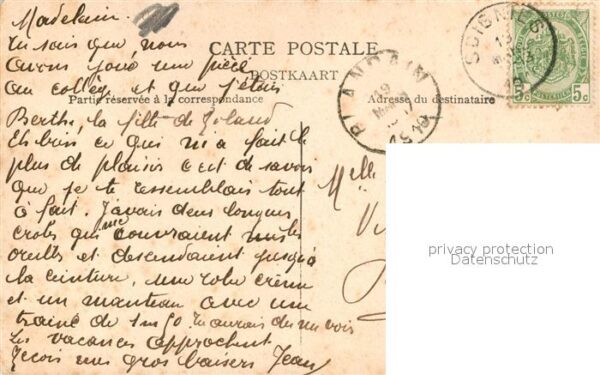 Madelein.
Tu sais que, nous
avons joué une pièce
au collège et que j'étais
CARTE POSTALE
POSTKAART
Partie réservée à la correspondance
Adresse du destinataire
Berthe, la fille de Roland
Eh bien ce qui m'a fait le
plus de plaisir c'est de savoir
que je te ressemblais tout
à fait. J'avais deux longues
crolles qui me couvraient les
oreilles et descendaient jusqu'à
la ceinture, une robe crème
et un manteau avec une
traine de 1m50. Tu aurais dû me voir
Les vacances approchent
Reçois mes gros baisers Jean
BLANDAIN
19
SOIGNIES
13
5c 5c
Melle
V
privacy protection
Datenschutz